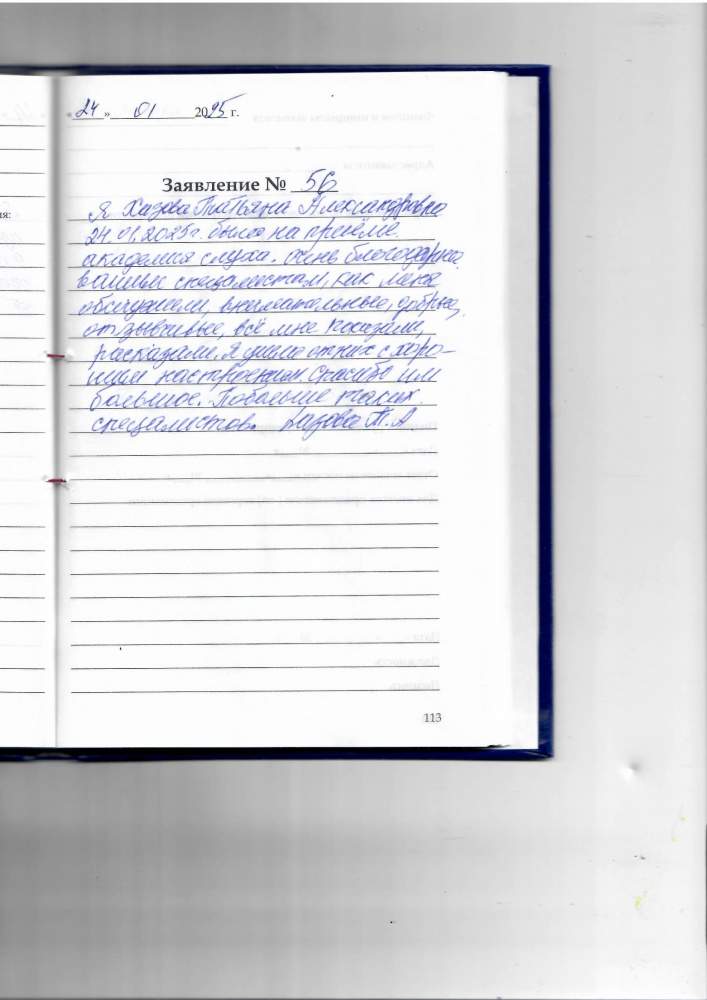 «24» 01 2025 г.
Заявление № 56
Я Хазова Татьяна Александровна
24.01.2025г. была на приёме
академия слуха. очень благодарна
вашим специалистам, как меня
обслужили, внимательные, добрые,
отзывчивые, всё мне показали,
рассказали. Я ушла от них с хоро-
шим настроением. Спасибо им
большое. Побольше таких
специалистов. Хазова Т.А.
ия:
113